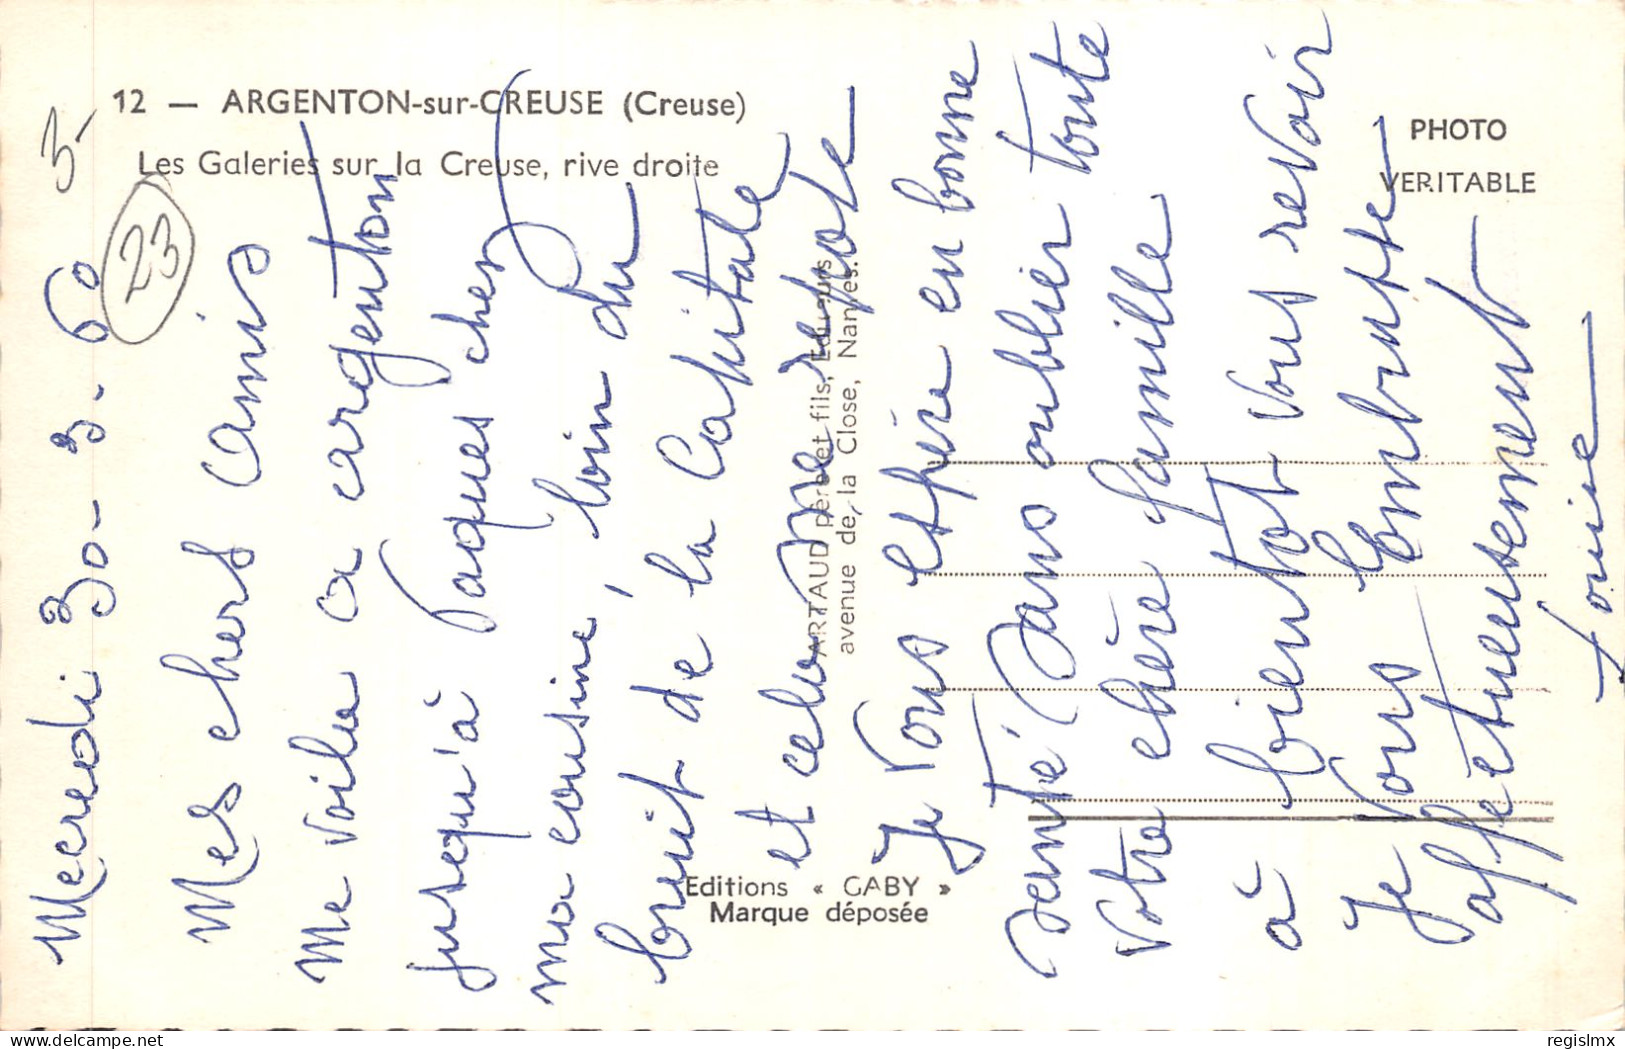 12 — ARGENTON-sur-CREUSE (Creuse)
Les Galeries sur la Creuse, rive droite
PHOTO
VERITABLE
3-
23
ARTAUD père et fils, Editeurs
avenue de la Close, Nantes.
Editions « GABY »
Marque déposée
Mercredi 30-3-60
Mes chers amis
Me voila a argenton
jusqu'à Paques chez
ma cousine, loin du
bruit de la Capitale
et cela me repose
Je vous espère en bonne
santé sans oublier toute
votre chère famille
à bientot vous revoir
Je vous
affectueusement
delcampe.net
regislmx